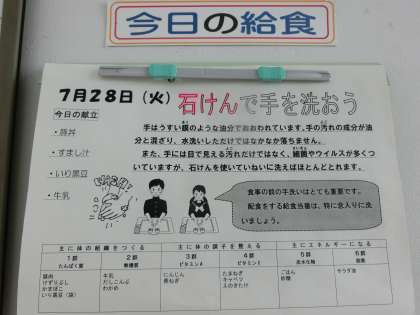 今日の給食
7月28日（火） 石けんで手を洗おう
今日の献立
・豚丼
・すまし汁
・いり黒豆
・牛乳
手はうすい膜のような油分でおおわれています。手の汚れの成分が油
分と混ざり、水洗いしただけではなかなか落ちません。
また、手には目で見える汚れだけではなく、細菌やウイルスが多くつ
いていますが、石けんを使いていねいに洗えばほとんどとれます。
食事の前の手洗いはとても重要です。
配食をする給食当番は、特に念入りに洗
いましょう。
主に体の組織をつくる 主に体の調子を整える 主にエネルギーになる
1群 2群 3群 4群 5群 6群
たんぱく質 無機質 ビタミンA ビタミンC 炭水化物 脂質
豚肉 牛乳 にんじん たまねぎ ごはん サラダ油
けずりぶし だしこんぶ 長ねぎ キャベツ 砂糖
かまぼこ わかめ えのきたけ
いり黒豆（袋）